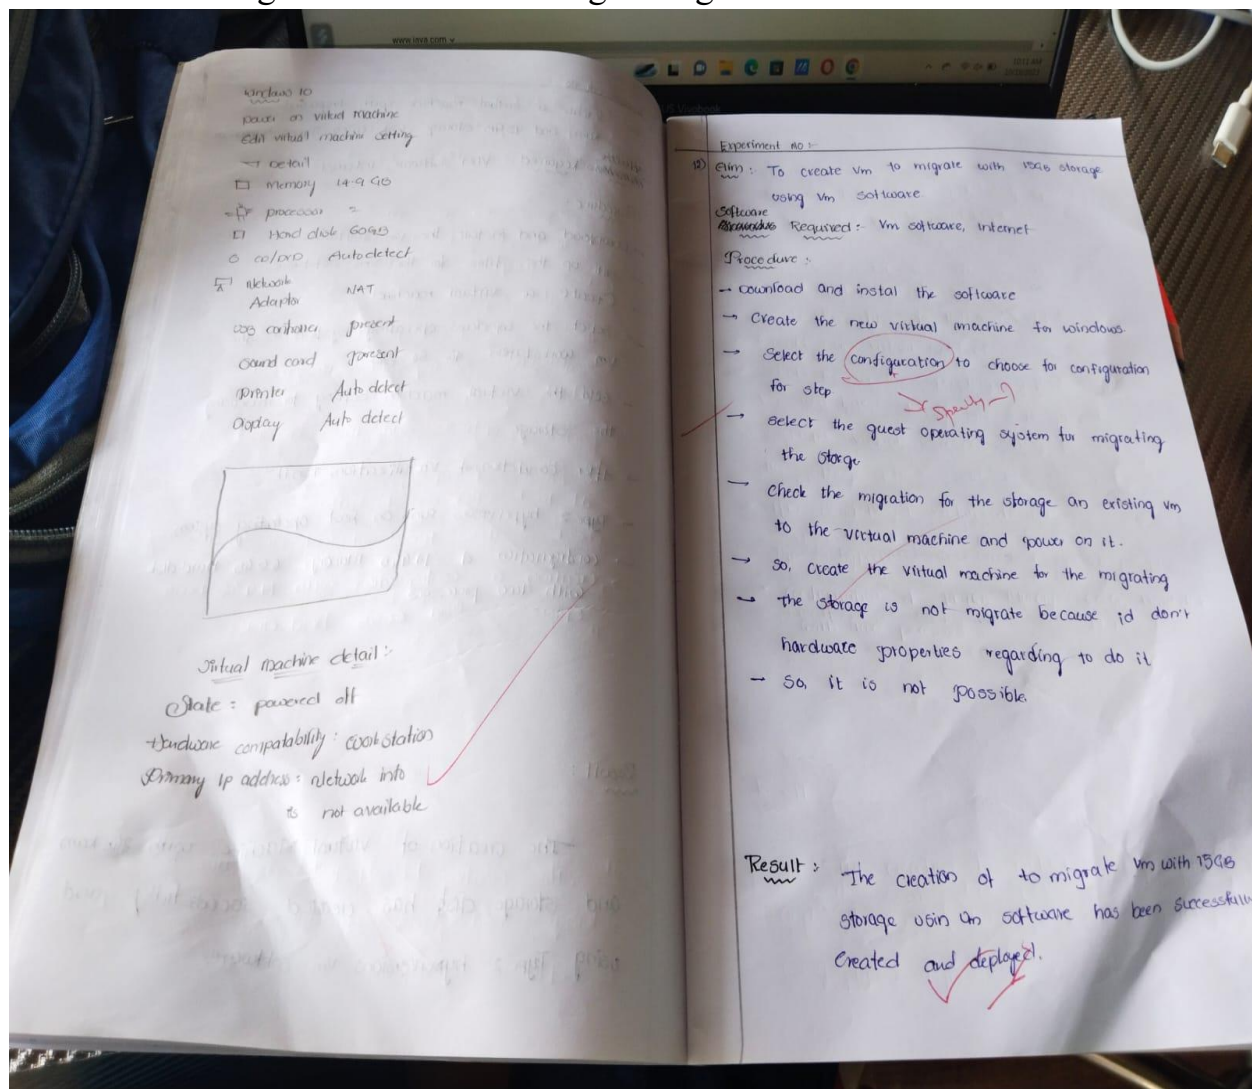 www.java.com
Windows 10
power on virtual machine
Edit virtual machine setting
→ Detail
Memory 14.9 GB
processor 2
Hard disk 60GB
CD/DVD Autodetect
Network
Adaptor NAT
present
Sound card present
Printer Auto detect
Display Auto detect
Virtual machine detail :-
State : powered off
Hardware compatability : workstation
Primary ip address : Network info
is not available
Experiment no :-
12) Aim : To create Vm to migrate with 15GB storage
using Vm software
Software
Required :- Vm software, internet
Procedure :-
→ Download and instal the software
→ Create the new virtual machine for windows.
→ Select the configuration to choose for configuration
for step
Specify
→ Select the guest operating system for migrating
the storge
→ Check the migration for the storage an existing vm
to the virtual machine and power on it.
→ So, create the virtual machine for the migrating
→ the storage is not migrate because id don't
hardware properties regarding to do it
→ So, it is not possible.
Result : The creation of to migrate Vm with 15GB
storage usin Vm software has been successfully
Created and deployed.